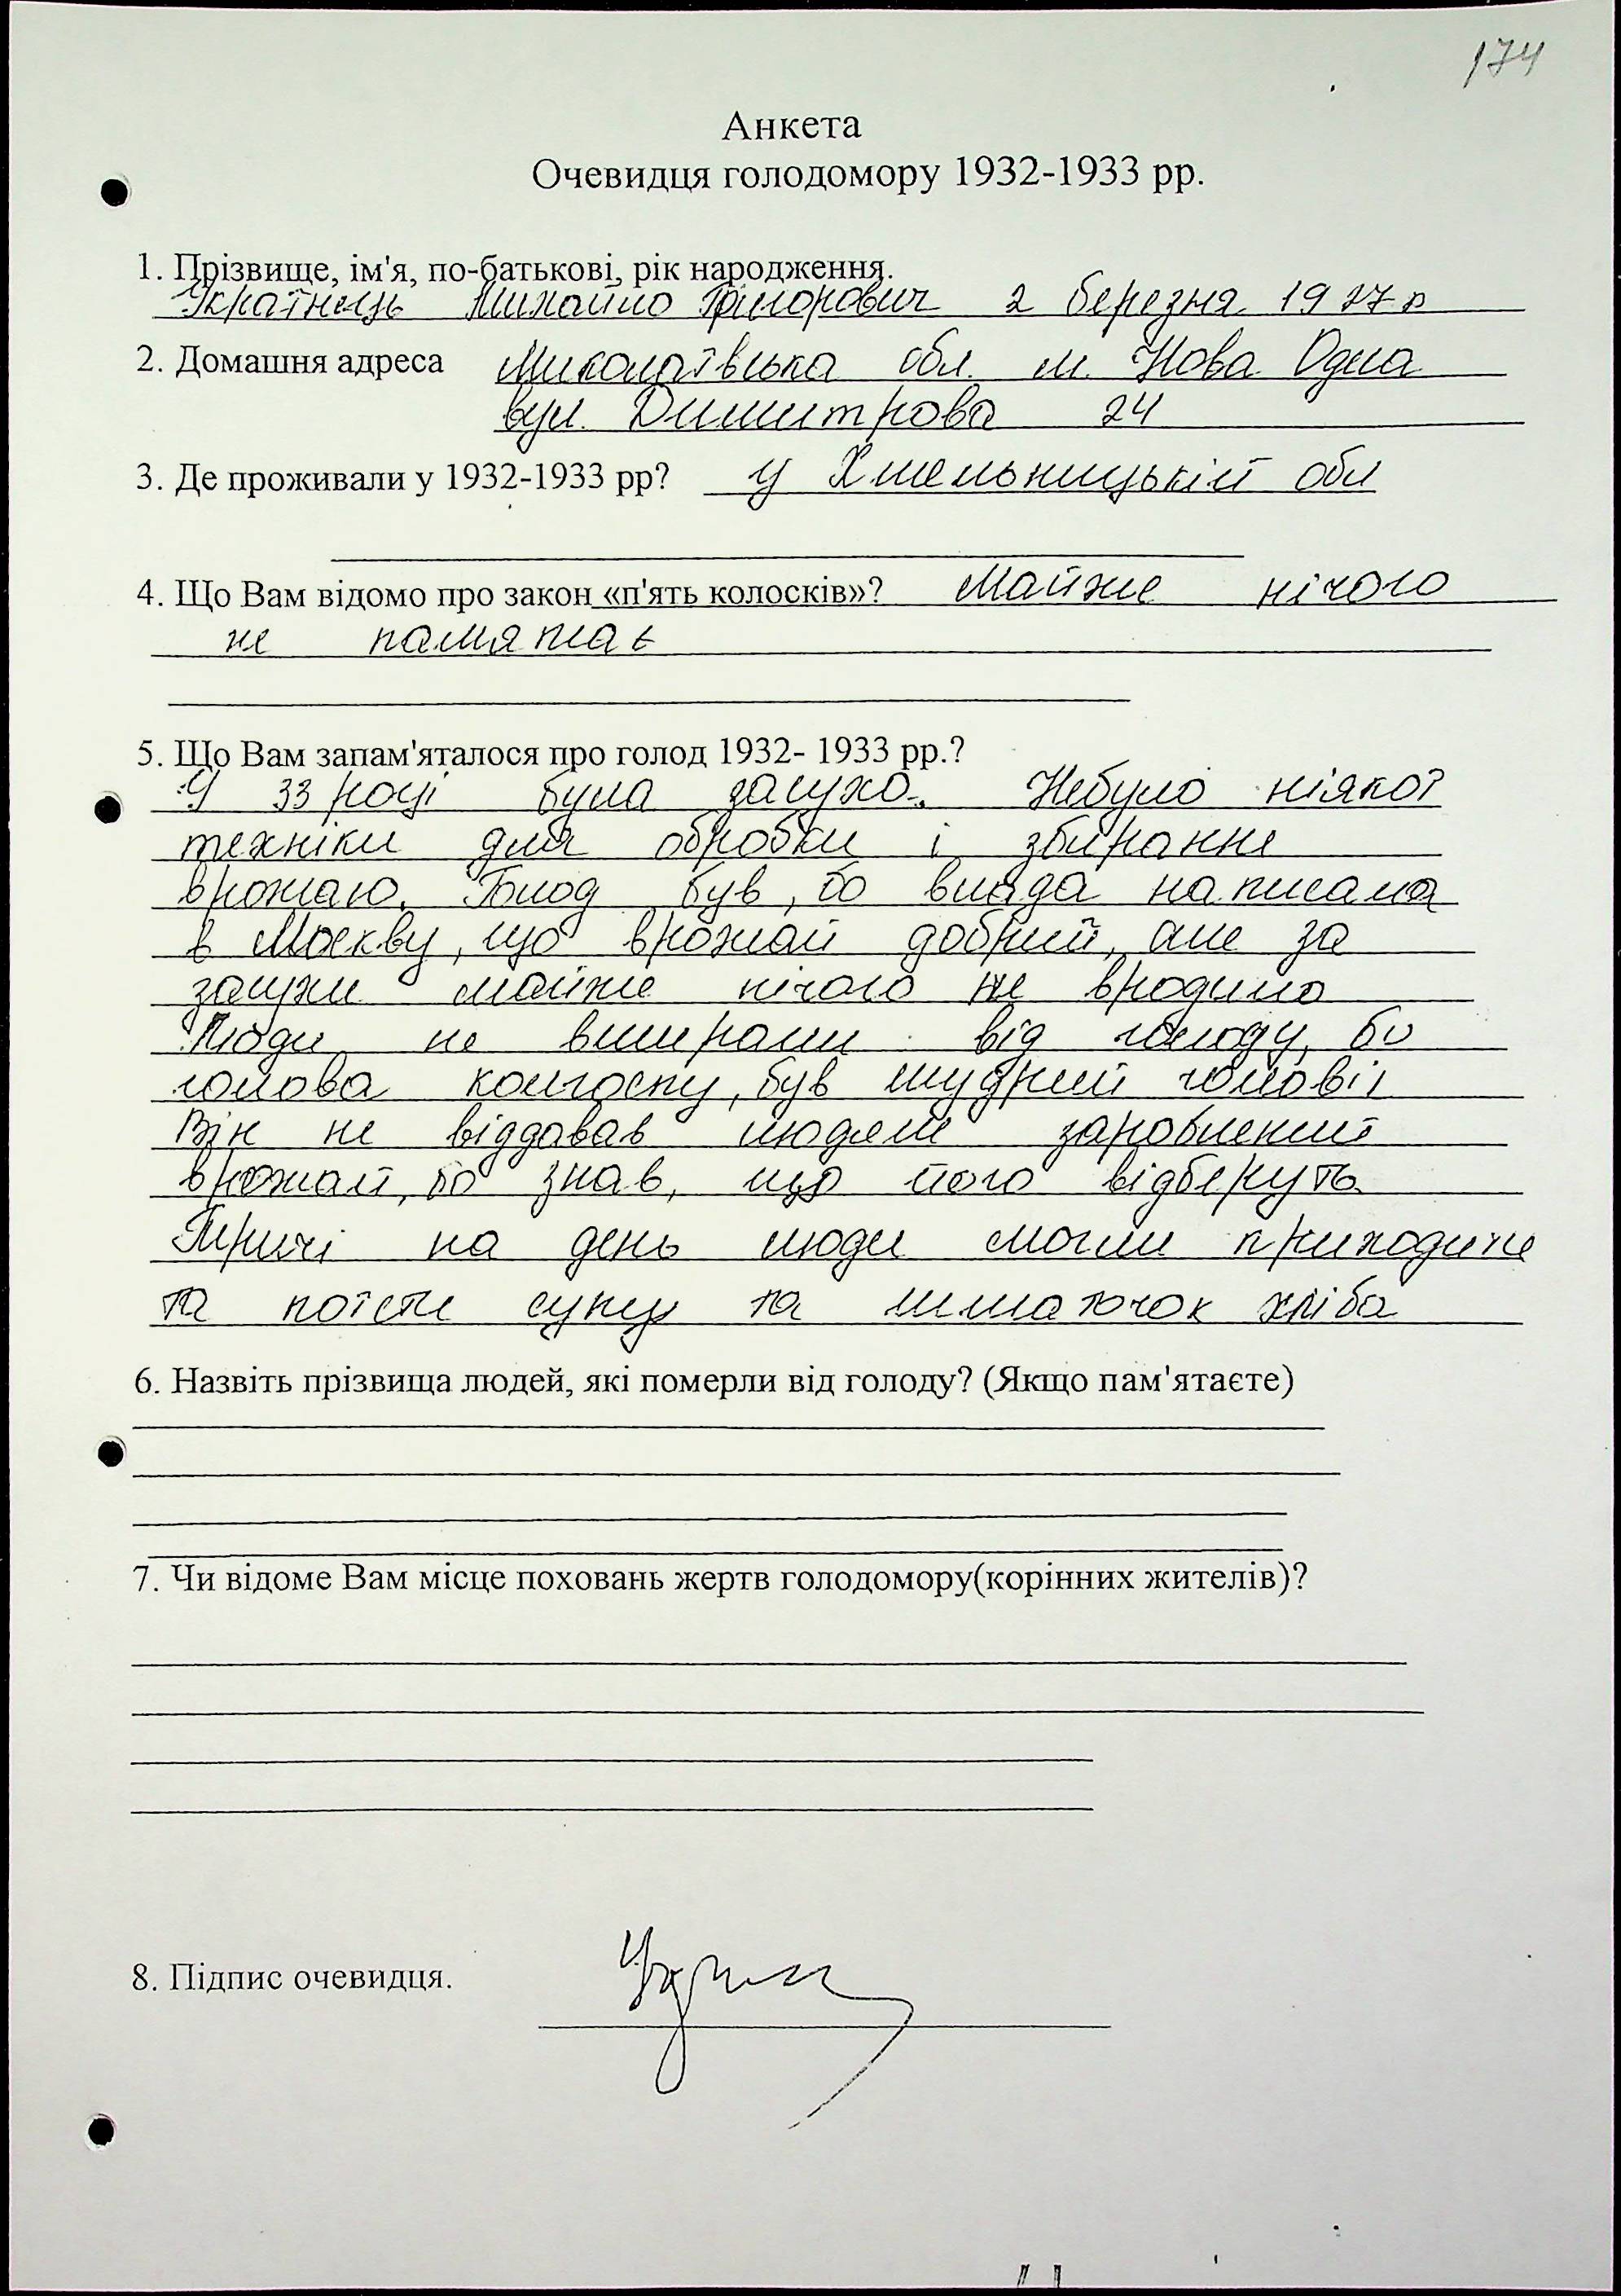 174
Анкета
Очевидця голодомору 1932-1933 рр.
1. Прізвище, ім'я, по-батькові, рік народження.
Українець Михайло Грігорович 2 березня 1927 р
2. Домашня адреса Миколаївська обл. м. Нова Одеа
вул. Димитрова 24
3. Де проживали у 1932-1933 рр? у Хмельницькій обл
4. Що Вам відомо про закон «п'ять колосків»? Майже нічого
не памятає
5. Що Вам запам'яталося про голод 1932- 1933 рр.?
У 33 році була засуха. Небуло ніякої
техніки для обробки і збирання
врожаю. Голод був, бо влада написала
в Москву, що врожай добрий, але за
засухи майже нічого не вродило
Люди не вмирали від голоду, бо
голова колгоспу, був мудрий чоловік
Він не віддавав людям зароблений
врожай, бо знав, що його відберуть
Тричі на день люди могли приходити
та поїсти супу та шматочок хліба
6. Назвіть прізвища людей, які померли від голоду? (Якщо пам'ятаєте)
7. Чи відоме Вам місце поховань жертв голодомору(корінних жителів)?
8. Підпис очевидця.